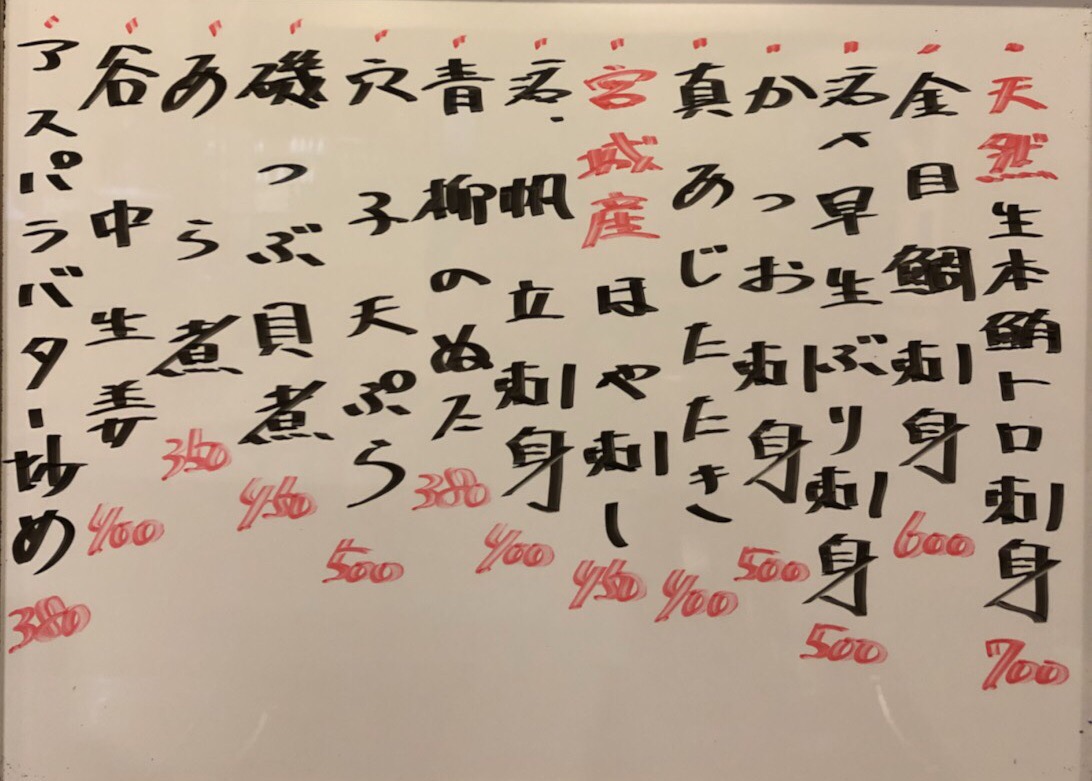 天然生本鮪トロ刺身 700
金目鯛刺身 600
早生ぶり刺身 500
かつお刺身 500
真あじたたき 400
宮城産ほや刺し 450
帆立刺身 400
青柳のぬた 380
穴子天ぷら 500
磯つぶ貝煮 450
あら煮 350
谷中生姜 400
アスパラバター炒め 380